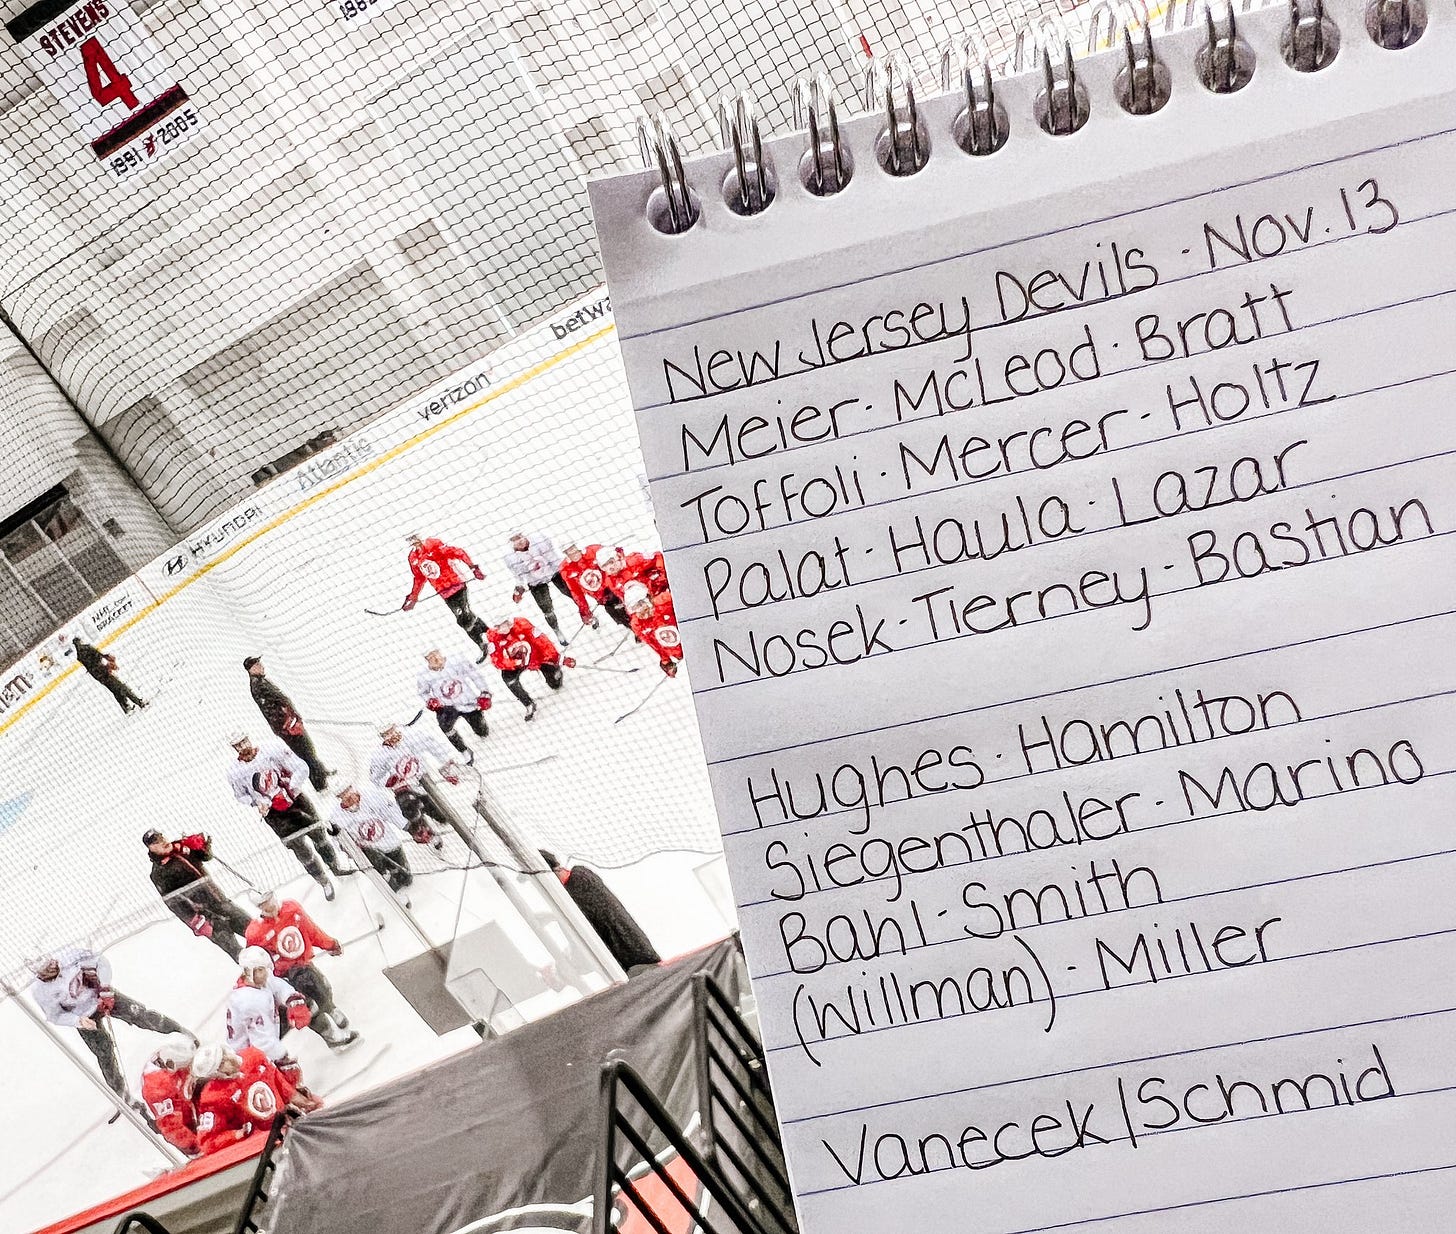 STEVENS
4
1991 2005
198
betwa
verizon
Atlantic
HYUNDAI
New Jersey Devils · Nov. 13
Meier · McLeod · Bratt
Toffoli · Mercer · Holtz
Palat · Haula · Lazar
Nosek · Tierney · Bastian
Hughes · Hamilton
Siegenthaler · Marino
Bahl · Smith
(Willman) · Miller
Vanecek/Schmid